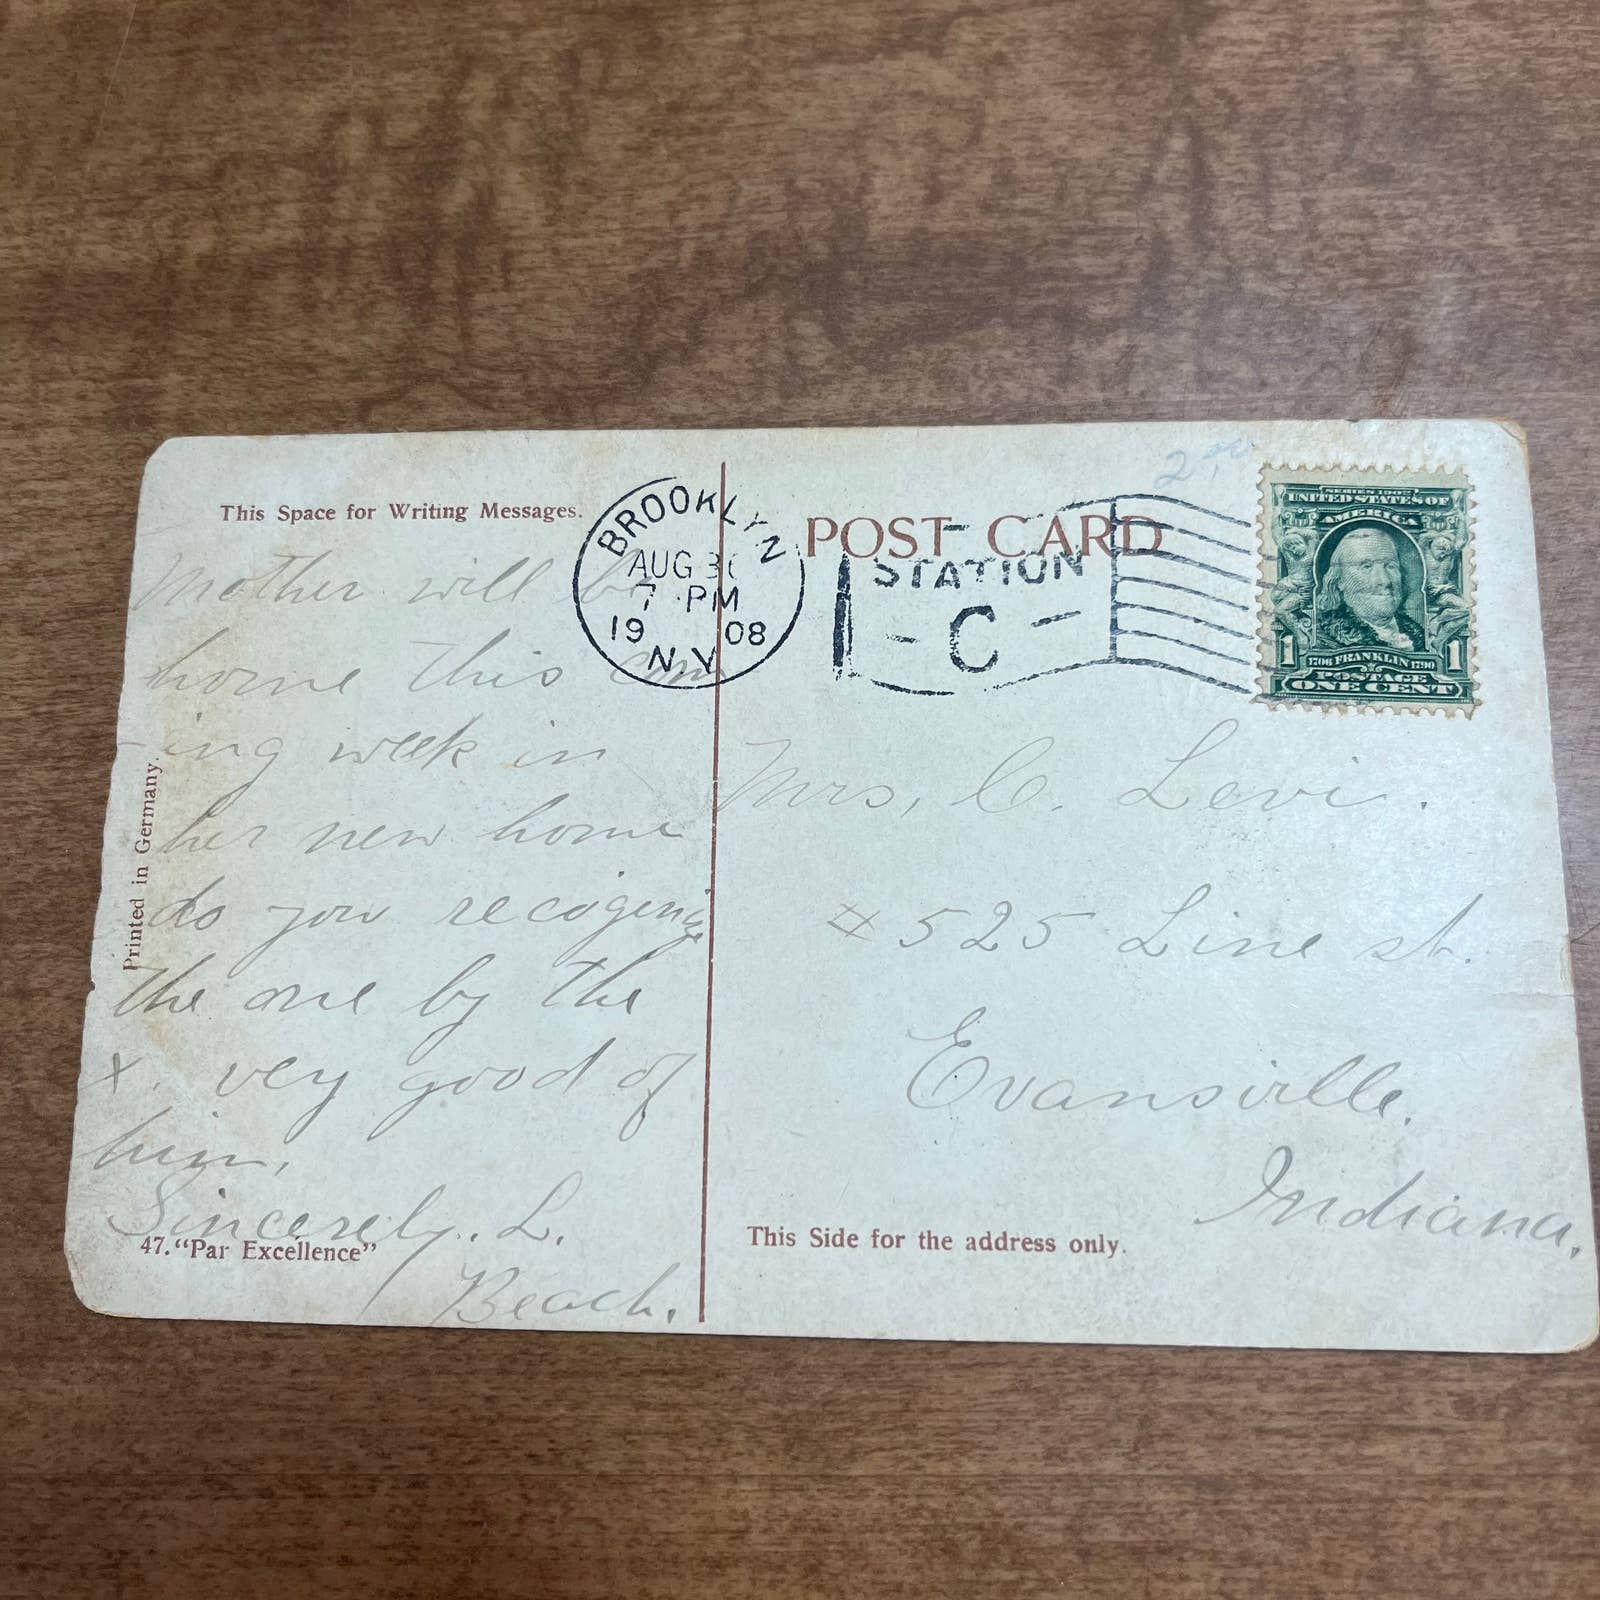 This Space for Writing Messages.
Mother will be
home this com
-ing week in
her new home
do you recogenize
the one by the
x. very good of
him,
Sincerely. L.
Beach.
Printed in Germany.
47. "Par Excellence"
BROOKLYN
AUG 3
7 PM
19 08
N.Y.
POST CARD
STATION
C
SERIES 1902
UNITED STATES OF
AMERICA
1 1
1706 FRANKLIN 1790
POSTAGE
ONE CENT
Mrs, C. Levi.
# 525 Line st.
Evansville.
Indiana.
This Side for the address only.